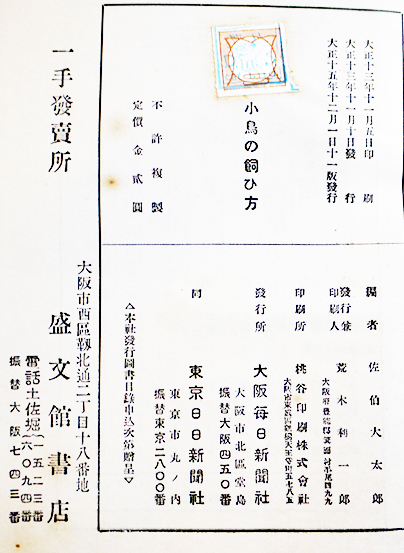 大正十三年十一月五日印刷
大正十三年十一月十日發行
大正十五年十二月一日十一版發行
小鳥の飼ひ方
不許複製
定價金貳圓
編者 佐伯大太郎
發行兼印刷人 荒木利一郎
印刷所 桃谷印刷株式會社
發行所 大阪每日新聞社
大阪市北區堂島
振替大阪四五〇番
同 東京日日新聞社
東京市丸ノ内
振替東京二八〇〇番
〈本社發行圖書目錄申込次第贈呈〉
一手發賣所
大阪市西區靱北通二丁目十八番地
盛文館書店
電話土佐堀(一五二三番
六〇九四番
振替大阪七四三番